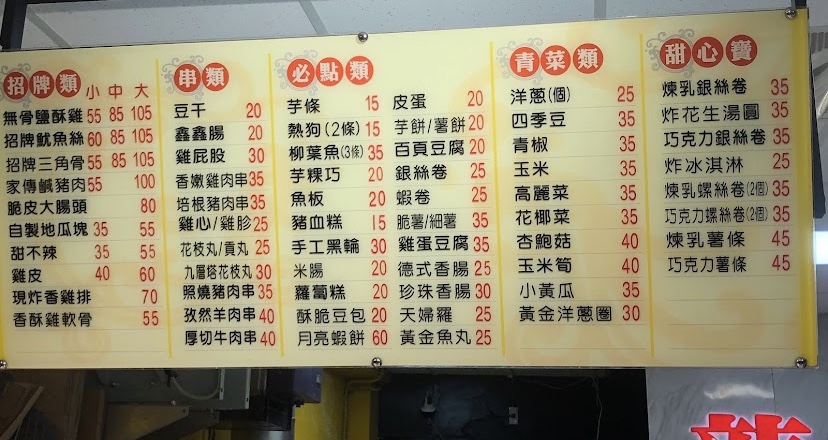 招牌類 小 中 大
無骨鹽酥雞 55 85 105
招牌魷魚絲 60 85 105
招牌三角骨 55 85 105
家傳鹹豬肉 55 100
脆皮大腸頭 80
自製地瓜塊 35 55
甜不辣 35 55
雞皮 40 60
現炸香雞排 70
香酥雞軟骨 55
串類
豆干 20
鑫鑫腸 20
雞屁股 30
香嫩雞肉串 35
培根豬肉串 35
雞心/雞胗 25
花枝丸/貢丸 25
九層塔花枝丸 30
照燒豬肉串 35
孜然羊肉串 40
厚切牛肉串 40
必點類
芋條 15
熱狗(2條) 15
柳葉魚(3條) 35
芋粿巧 20
魚板 20
豬血糕 15
手工黑輪 30
米腸 20
蘿蔔糕 20
酥脆豆包 20
月亮蝦餅 60
皮蛋 20
芋餅/薯餅 20
百頁豆腐 20
銀絲卷 25
蝦卷 25
脆薯/細薯 35
雞蛋豆腐 35
德式香腸 25
珍珠香腸 30
天婦羅 25
黃金魚丸 25
青菜類
洋蔥(個) 25
四季豆 35
青椒 35
玉米 35
高麗菜 35
花椰菜 35
杏鮑菇 40
玉米筍 40
小黃瓜 35
黃金洋蔥圈 30
甜心寶
煉乳銀絲卷 35
炸花生湯圓 35
巧克力銀絲卷 35
炸冰淇淋 25
煉乳螺絲卷(2個) 35
巧克力螺絲卷(2個) 35
煉乳薯條 45
巧克力薯條 45